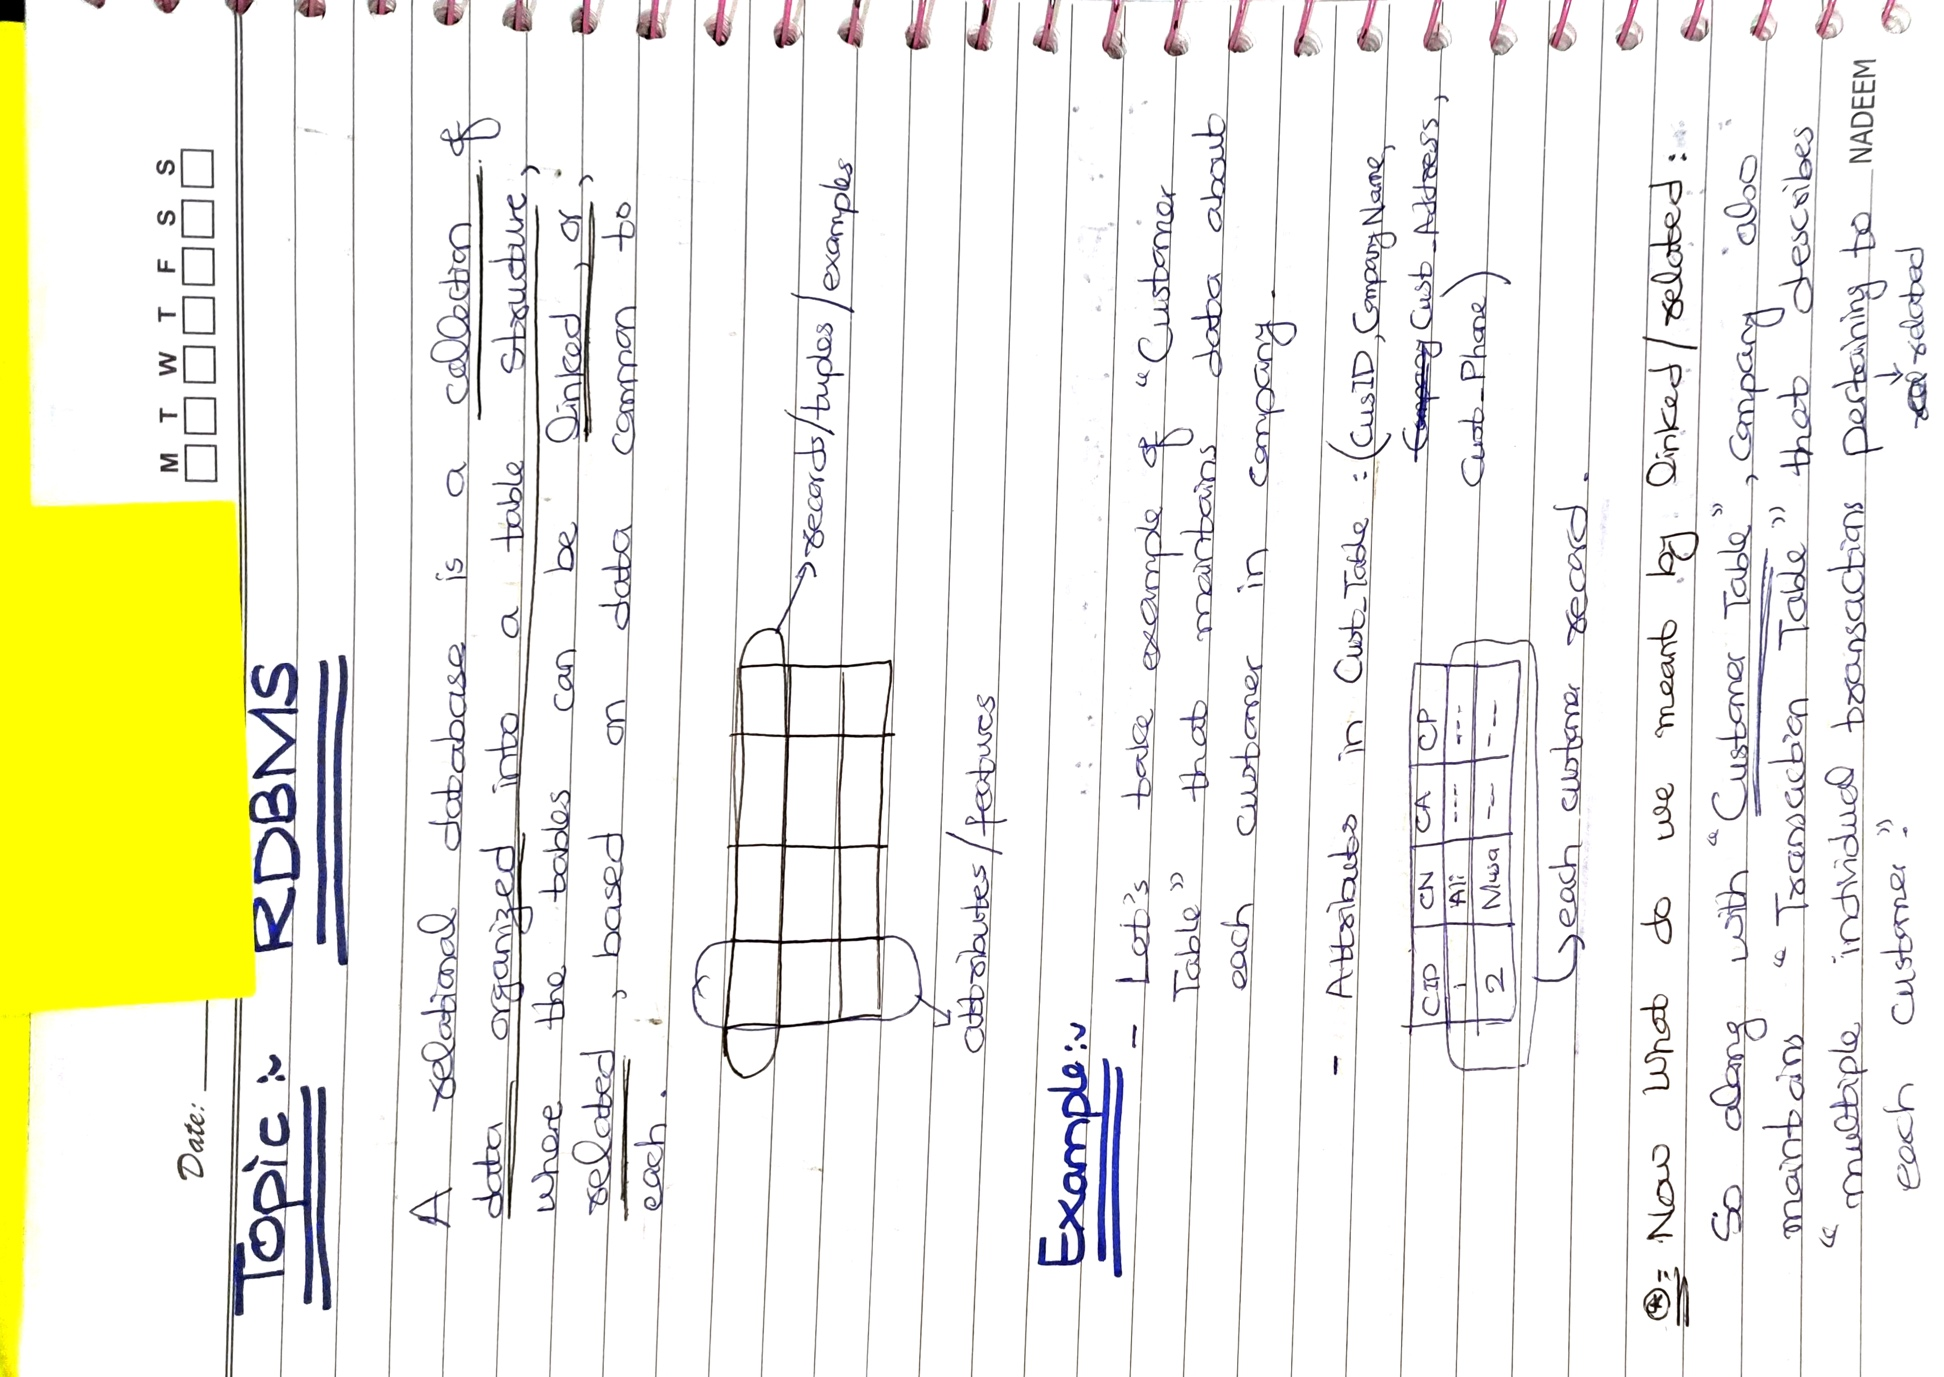 M T W T F S S
Date:
Topic :~ RDBMS
A relational database is a collection of
data organized into a table structure,
where the tables can be linked, or,
related, based on data common to
each.
records/tuples/examples
attributes/features
Example:~
- Let's take example of "Customer
Table" that maintains data about
each customer in company.
- Attributes in Cust_Table : (CusID, CompanyName,
Cust_Address,
Cust_Phone)
CID CN CA CP
1 Ali --- ---
2 Musa --- ---
each customer record.
⊛= Now what do we meant by linked/related:
So along with "Customer Table", company also
maintains "Transaction Table" that describes
"multiple individual transactions pertaining to
related
each customer".
NADEEM